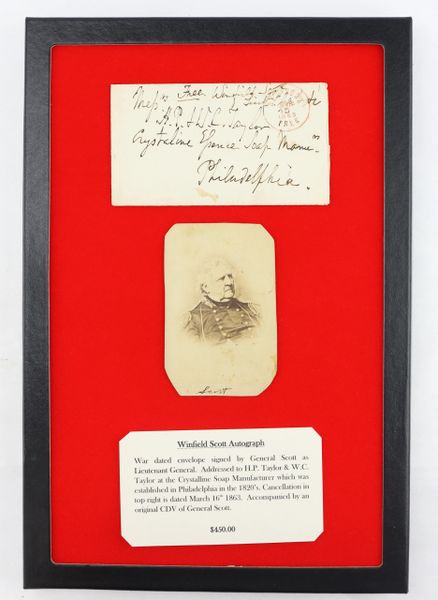 Free Winfield Scott
Messrs
H.P. & W.C. Taylor
Crystaline Spence Soap Manu.rs
Philadelphia.
FREE
Scott
Winfield Scott Autograph
War dated envelope signed by General Scott as
Lieutenant General. Addressed to H.P. Taylor & W.C.
Taylor at the Crystalline Soap Manufacturer which was
established in Philadelphia in the 1820's. Cancellation in
top right is dated March 16th 1863. Accompanied by an
original CDV of General Scott.
$450.00